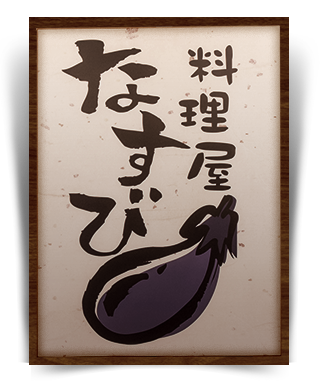 料理屋
なすび